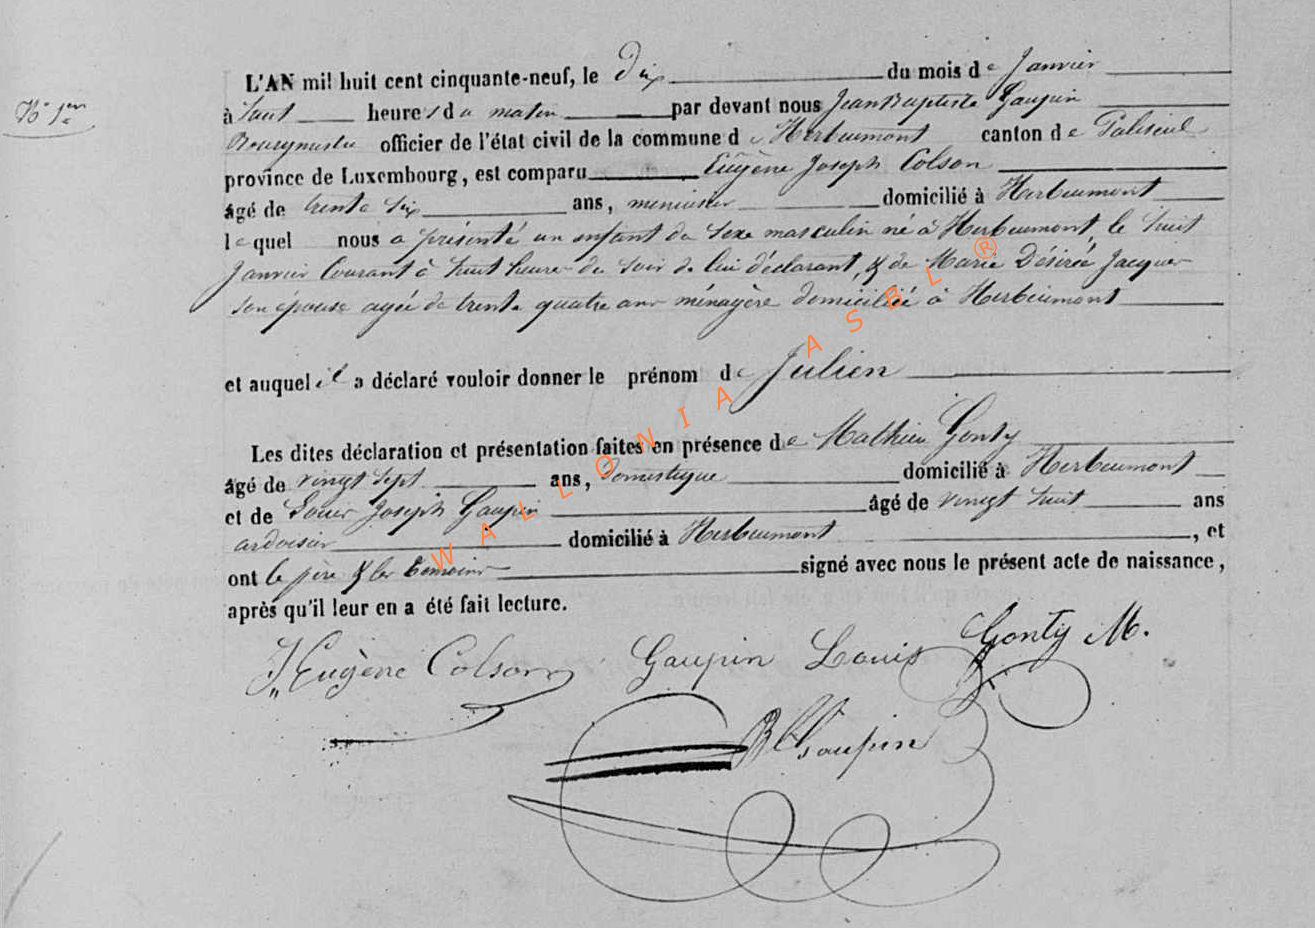 N° 1er
L'AN mil huit cent cinquante-neuf, le Dix du mois de Janvier
à huit heures du matin par devant nous Jean Baptiste Gaupin
Bourgmestre officier de l'état civil de la commune de Herbeumont canton de Paliseul
province de Luxembourg, est comparu Eugène Joseph Colson
âgé de trente six ans, menuisier domicilié à Herbeumont
lequel nous a présenté un enfant du sexe masculin né à Herbeumont le huit
Janvier Courant à huit heures du soir de lui déclarant, & de Marie Désirée Jacques
son épouse agée de trente quatre ans ménagère domiciliée à Herbeumont
et auquel il a déclaré vouloir donner le prénom de Julien
Les dites déclaration et présentation faites en présence de Mathieu Gonty
âgé de vingt sept ans, Domestique domicilié à Herbeumont
et de Louis Joseph Gaupin âgé de vingt huit ans
ardoisier domicilié à Herbeumont, et
ont le père & les témoins signé avec nous le présent acte de naissance,
après qu'il leur en a été fait lecture.
J,, Eugène Colson Gaupin Louis Gonty M.
JB Gaupin
WALLONIA ASBL ®